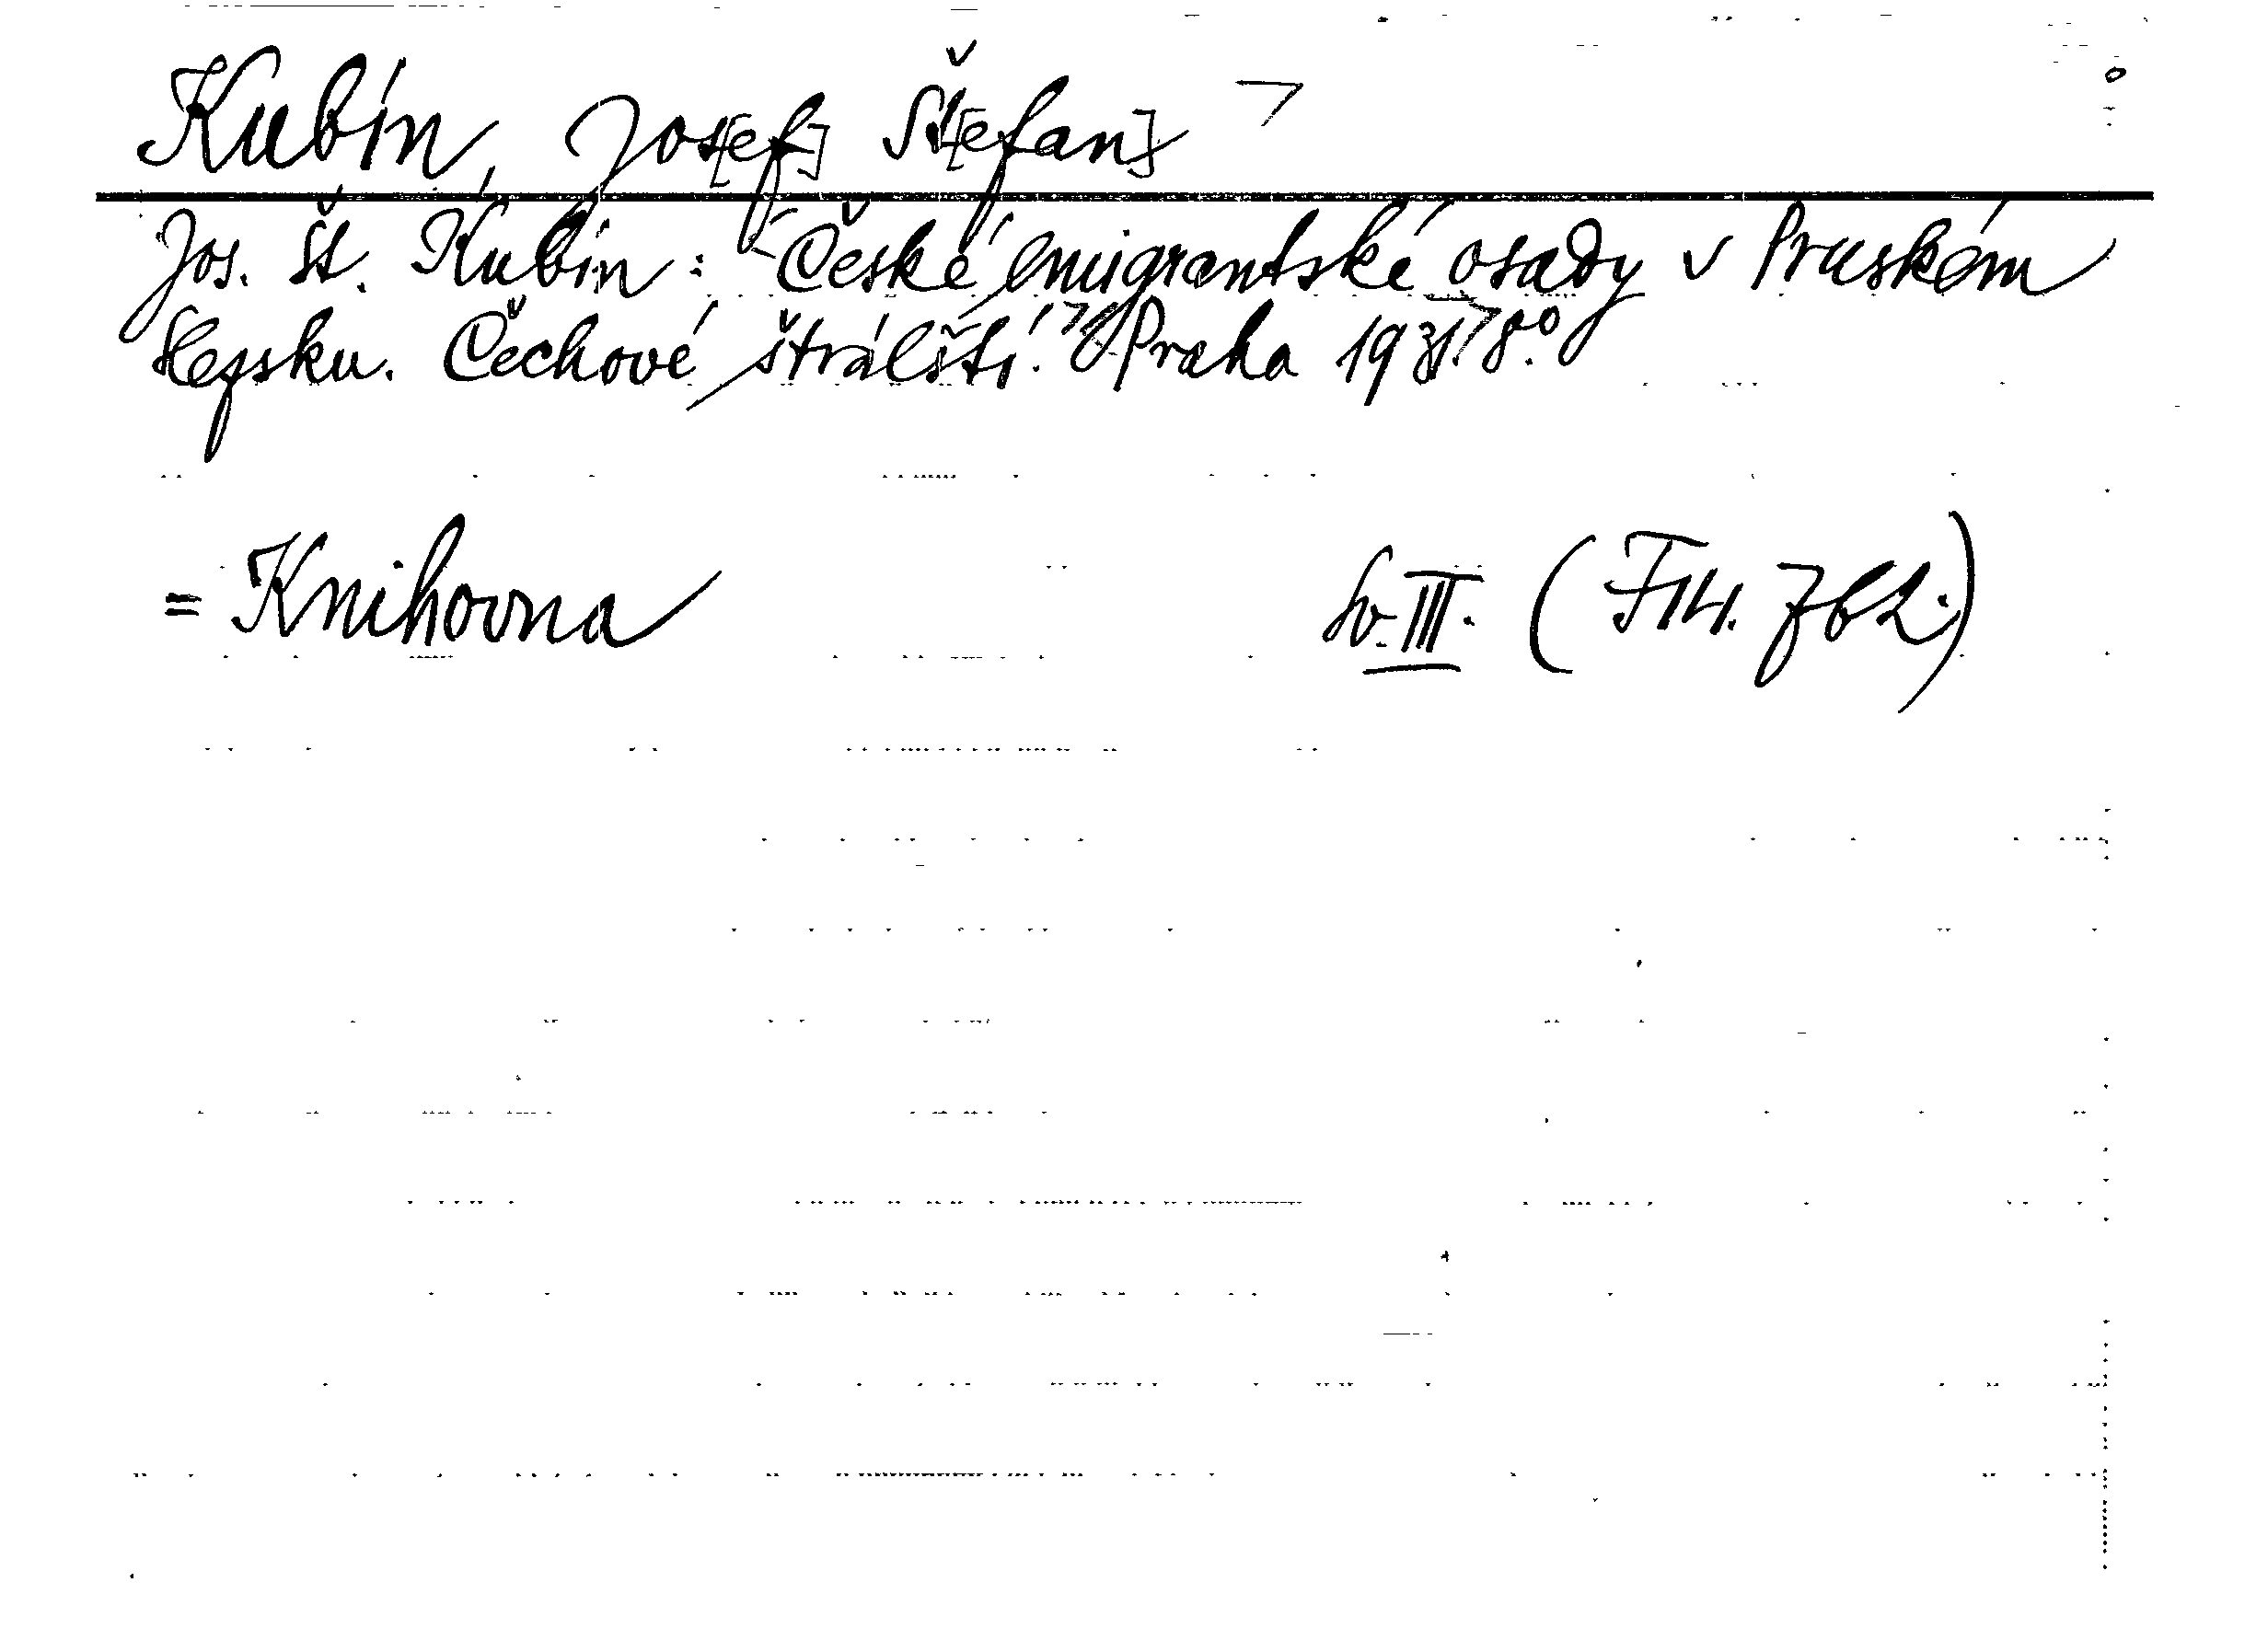 Kubín, Jos[ef] Št[efan]
Jos. Št. Kubín: České emigrantské osady v Pruském
Slezsku. Čechové štrálští. Praha 1931. 8.º
= Knihovna sv. III. (Fil. Zbl.)